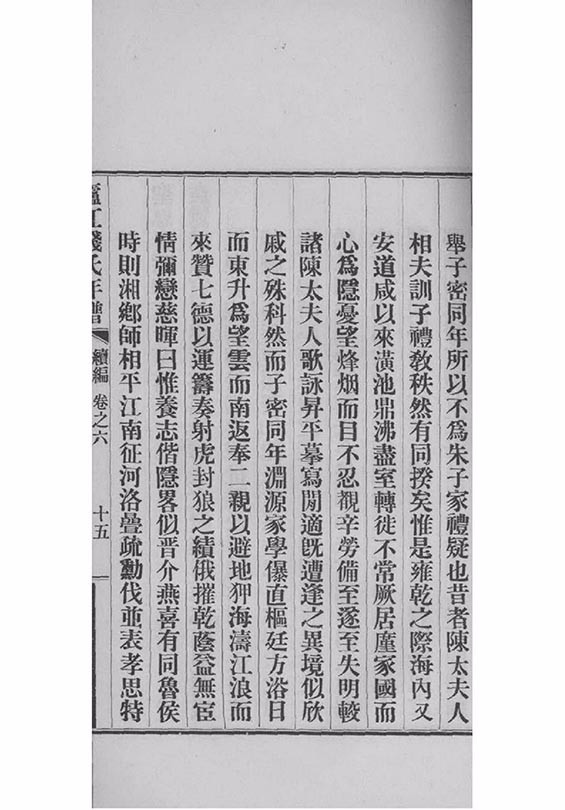 舉子密同年所以不爲朱子家禮疑也昔者陳太夫人
相夫訓子禮敎秩然有同揆矣惟是雍乾之際海內乂
安道咸以來潢池鼎沸盡室轉徙不常厥居廑家國而
心爲隱憂望烽烟而目不忍覩辛勞備至遂至失明較
諸陳太夫人歌詠昇平摹寫閒適旣遭逢之異境似欣
戚之殊科然而子密同年淵源家學儤直樞廷方浴日
而東升爲望雲而南返奉二親以避地狎海濤江浪而
來贊七德以運籌奏射虎封狼之績俄摧乾蔭益無宦
情彌戀慈暉曰惟養志偕隱畧似晋介燕喜有同魯侯
時則湘鄉師相平江南征河洛疊疏勳伐並表孝思特
廬江錢氏年譜 續編 卷之六 十五